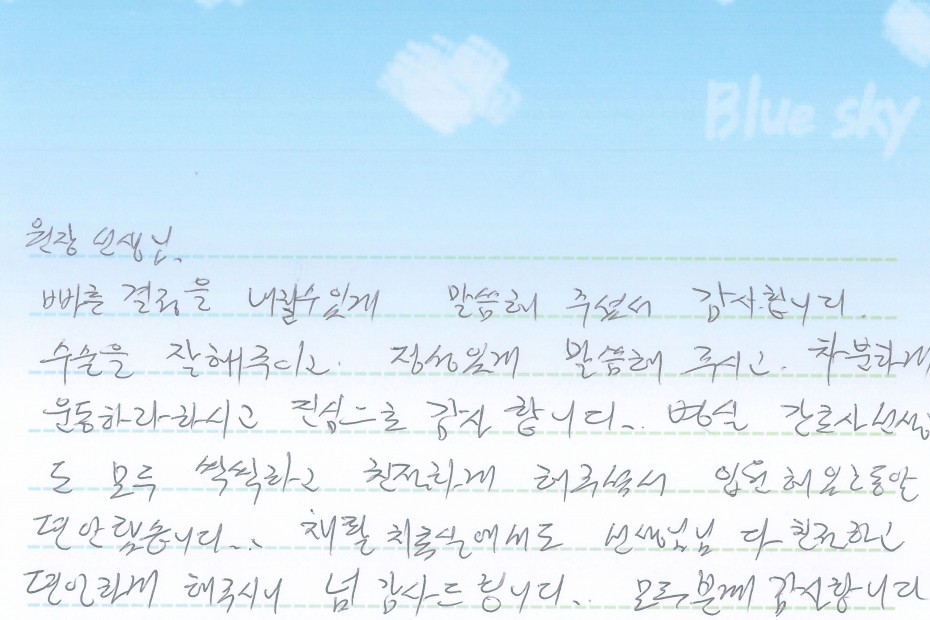 Blue sky
원장 선생님.
빠른 결정을 내릴수있게 말씀해 주셔서 감사합니다.
수술을 잘해주시고. 정성있게 말씀해 주시고. 차분하게
운동하라하시고 진심으로 감사 합니다.. 병실 간호사선생님
도 모두 싹싹하고 친절하게 해주셔서 입원 동안
편안했습니다... 재활 치료실에서도 선생님님 다 친절하고
편안하게 해주시니 넘 감사드립니다.. 모두분께 감사합니다